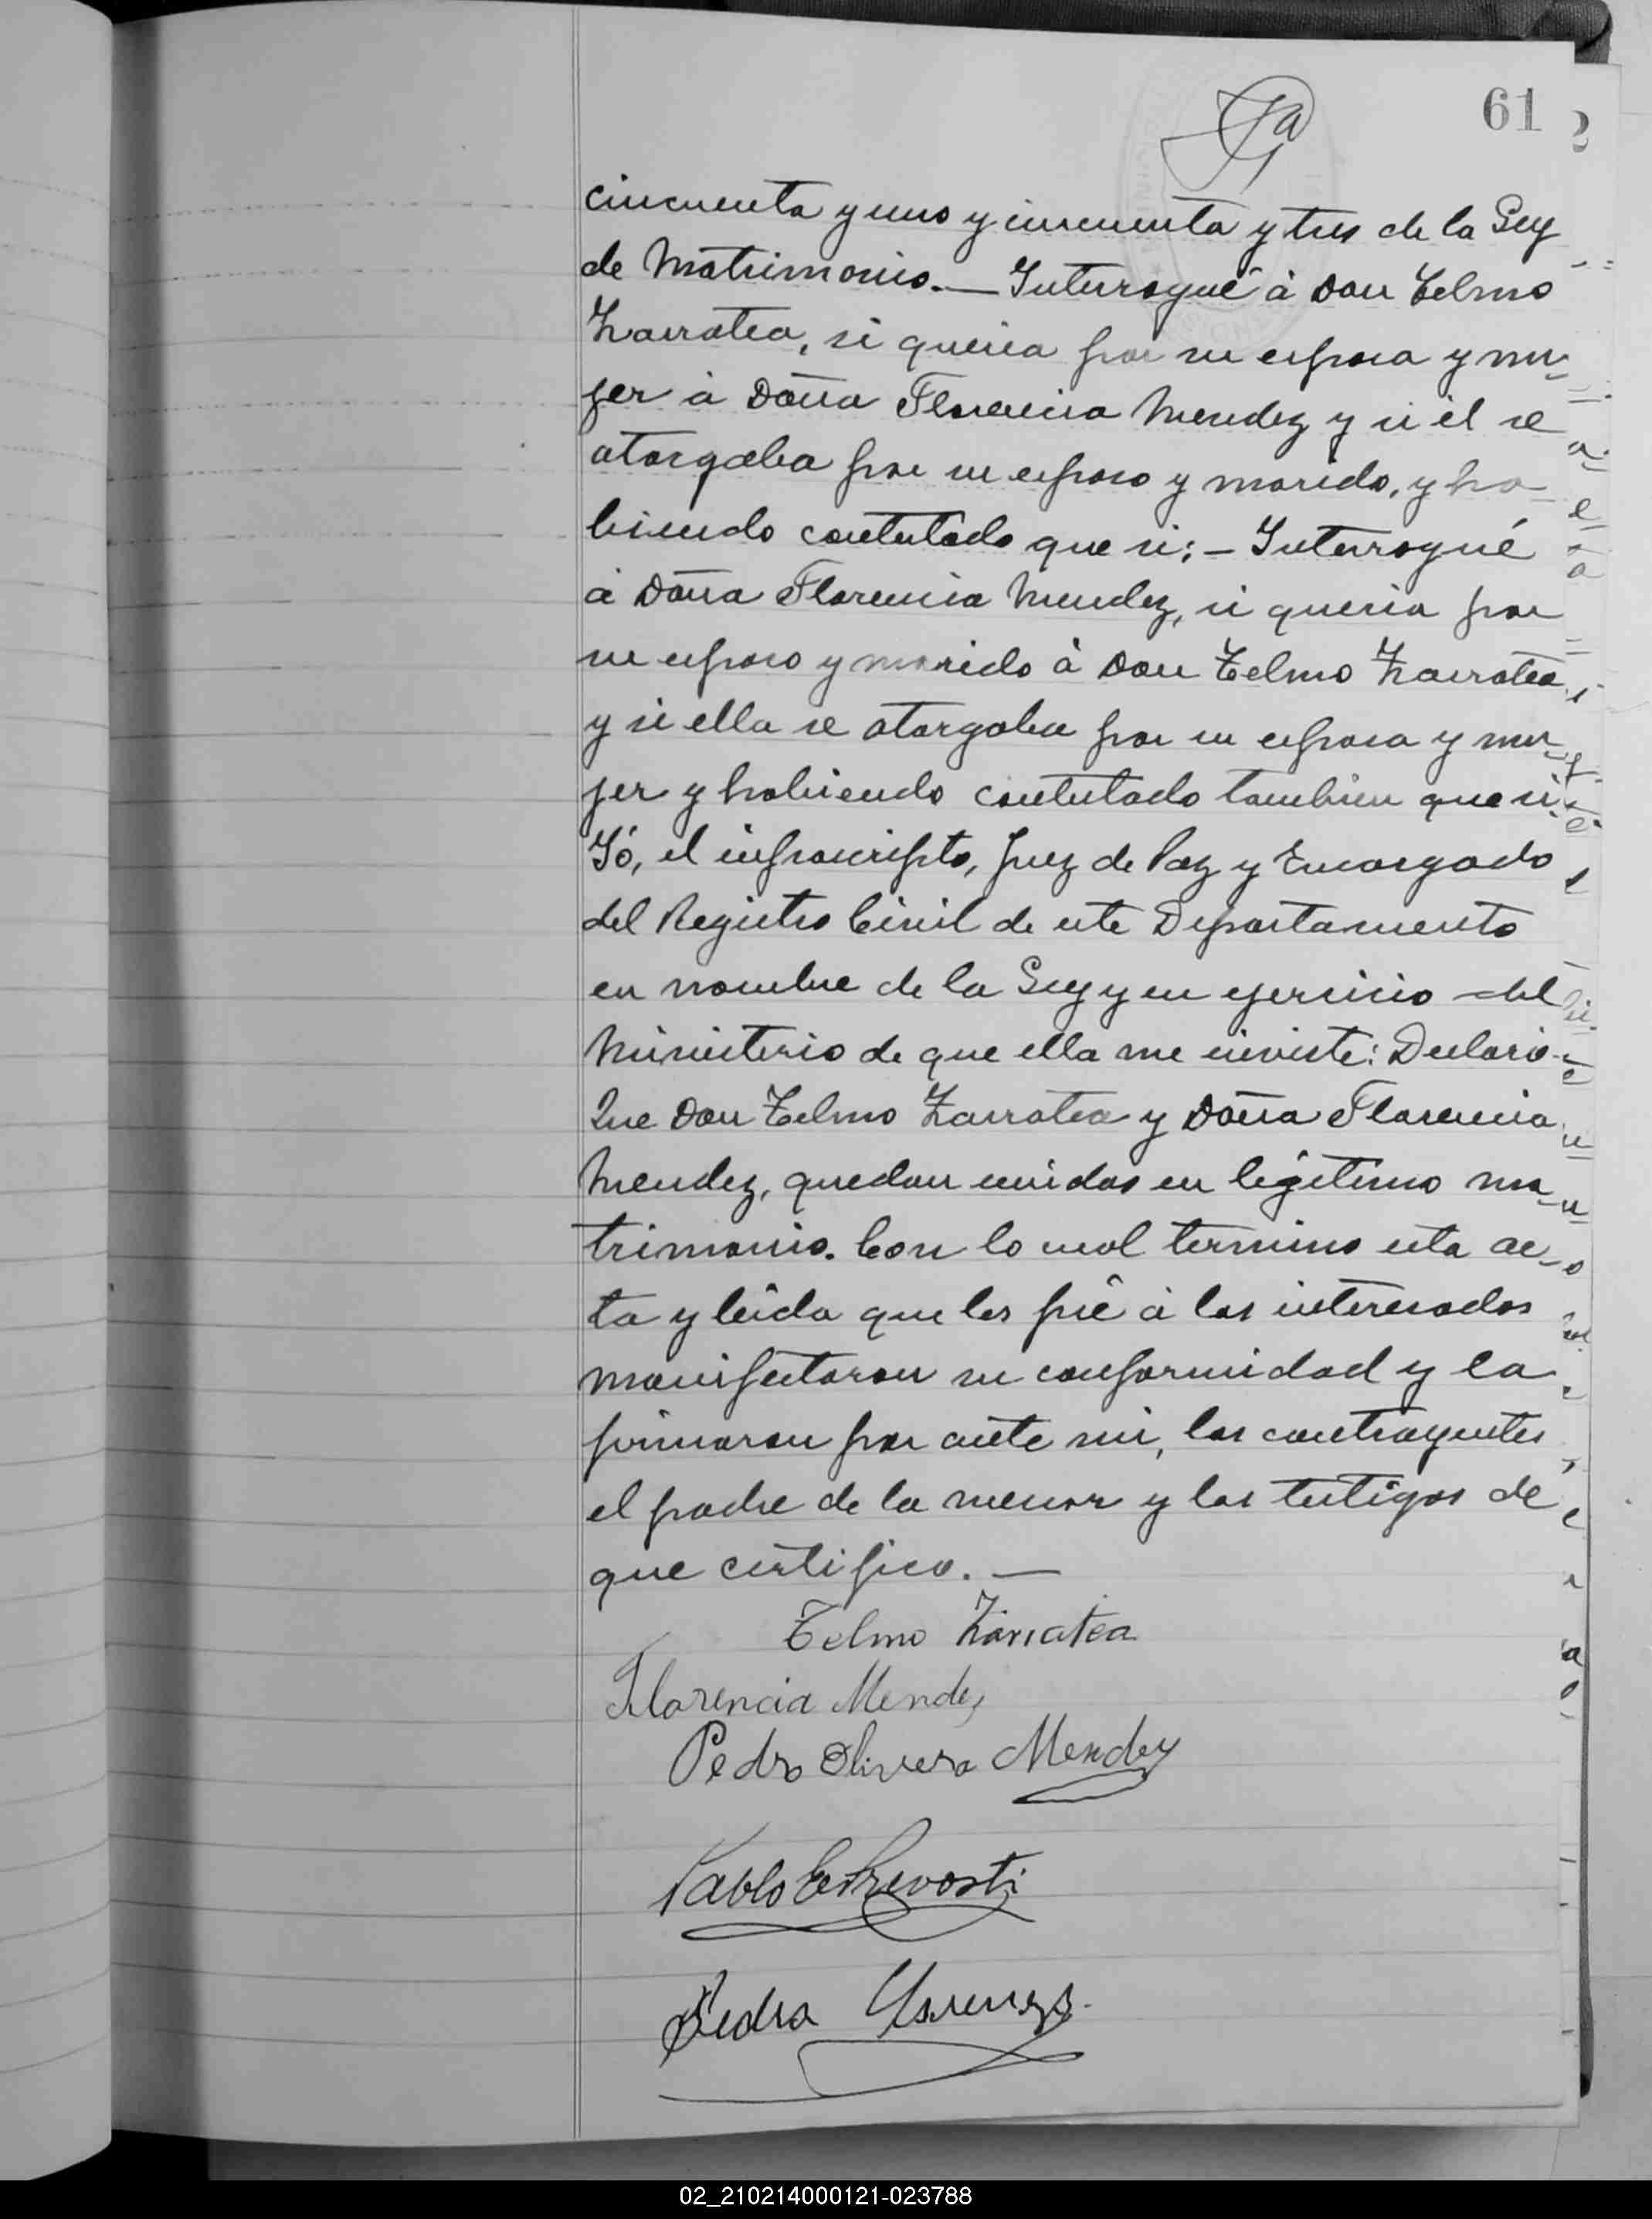 61
cincuenta y uno y cincuenta y tres de la Ley
de Matrimonio.— Interrogué à Don Telmo
Zarratea, si queria por su esposa y mu-
jer à Doña Florencia Mendez y si él se
otorgaba por su esposo y marido, y ha-
biendo contestado que si; – Interrogué
à Doña Florencia Mendez, si queria por
su esposo y marido à Don Telmo Zarratea
y si ella se otorgaba por su esposa y mu-
jer y habiendo contestado tambien que si.
Yó, el infrascripto, Juez de Paz y Encargado
del Registro Civil de este Departamento
en nombre de la Ley y en ejercicio del
Ministerio de que ella me inviste: Declaro-
Que Don Telmo Zarratea y Doña Florencia
Mendez, quedan unidos en legítimo ma-
trimonio. Con lo cual termino esta ac-
ta y leida que les fué à los interesados
manifestaron su conformidad y la
firmaron por ante mi, los contrayentes
el padre de la menor y los testigos de
que certifico. —
Telmo Zarratea
Florencia Mendez
Pedro Olivera Mendez
Pablo
Pedro
02_210214000121-023788